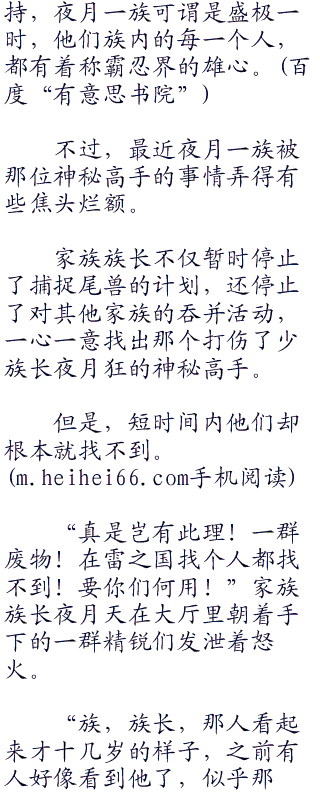 持，夜月一族可谓是盛极一
时，他们族内的每一个人，
都有着称霸忍界的雄心。(百
度“有意思书院”)
不过，最近夜月一族被
那位神秘高手的事情弄得有
些焦头烂额。
家族族长不仅暂时停止
了捕捉尾兽的计划，还停止
了对其他家族的吞并活动，
一心一意找出那个打伤了少
族长夜月狂的神秘高手。
但是，短时间内他们却
根本就找不到。
(m.heihei66.com手机阅读)
“真是岂有此理！一群
废物！在雷之国找个人都找
不到！要你们何用！”家族
族长夜月天在大厅里朝着手
下的一群精锐们发泄着怒
火。
“族，族长，那人看起
来才十几岁的样子，之前有
人好像看到他了，似乎那